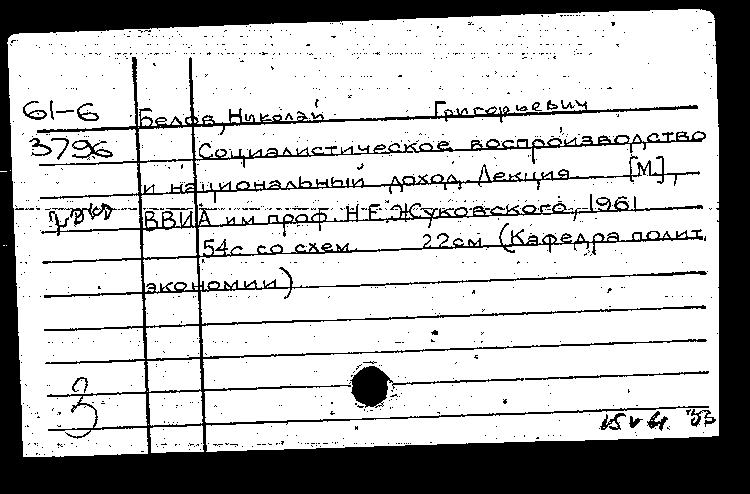 61-6 Белов, Николай Григорьевич
3796 Социалистическое воспроизводство
и национальный доход. Лекция. [М.],
ВВИА им. проф. Н.Е. Жуковского, 1961.
54с. со схем. 22см. (Кафедра полит.
экономии)
3
15 V 61